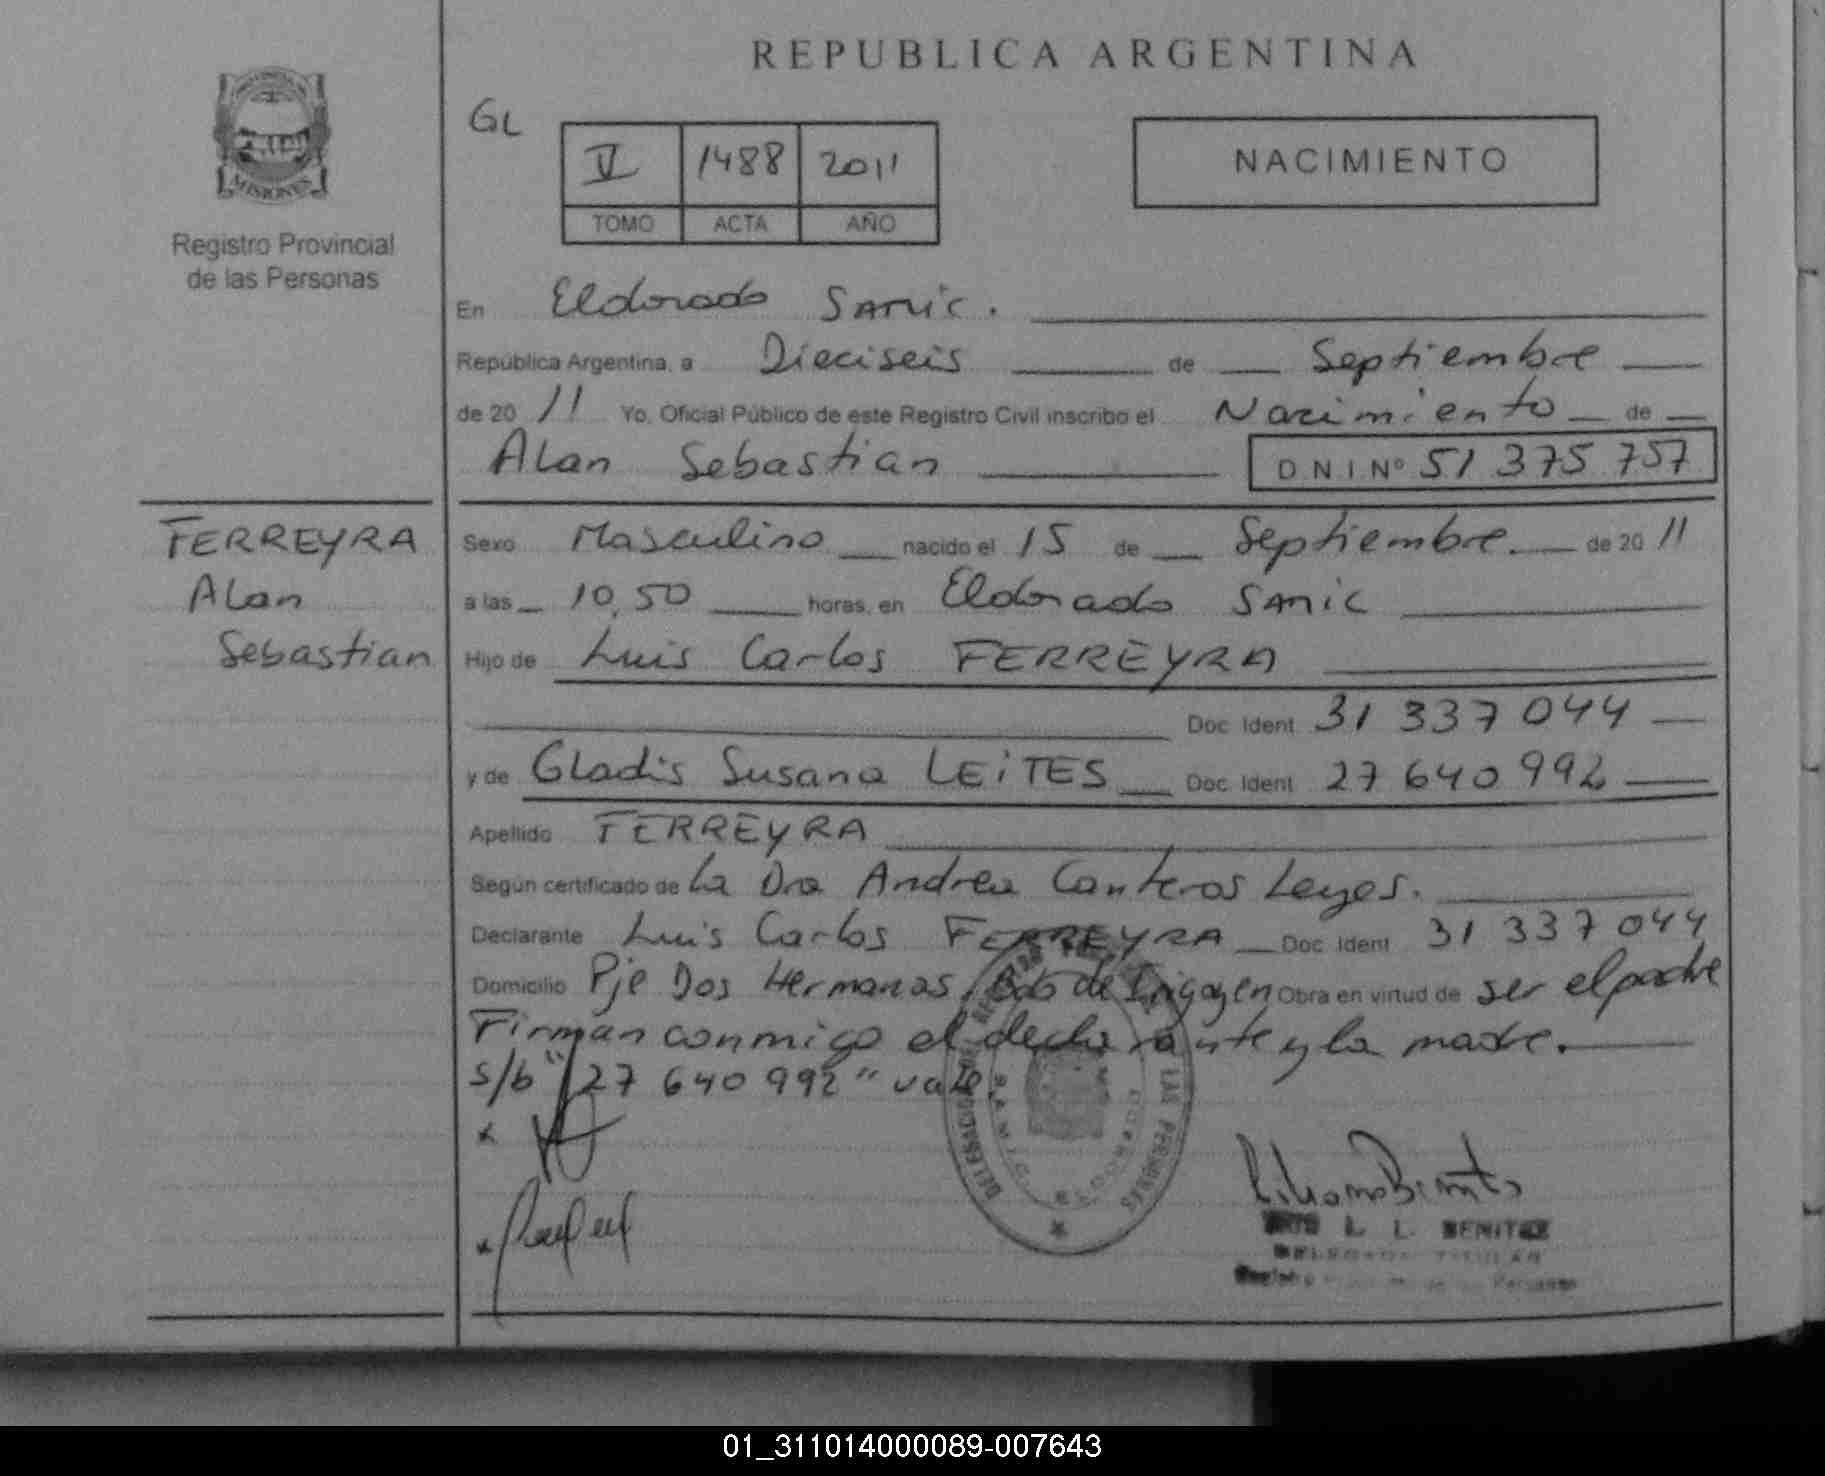 REPUBLICA ARGENTINA
GL
V 1488 2011
TOMO ACTA AÑO
NACIMIENTO
MISIONES
Registro Provincial
de las Personas
En Eldorado SAMIC.
República Argentina, a Dieciseis de Septiembre
de 2011 Yo, Oficial Público de este Registro Civil inscribo el Nacimiento de
Alan Sebastian D.N.I.Nº 51 375 757
FERREYRA
Alan
Sebastian
Sexo Masculino nacido el 15 de Septiembre de 2011
a las 10,50 horas, en Eldorado SAMIC
Hijo de Luis Carlos FERREYRA
Doc. Ident. 31 337 044
y de Gladis Susana LEiTES Doc. Ident. 27 640 992
Apellido FERREYRA
Según certificado de La Dra Andrea Canteros Leyes.
Declarante Luis Carlos FERREYRA Doc. Ident. 31 337 044
Domicilio Pje Dos Hermanas, Bdo de Irigoyen Obra en virtud de ser el padre
Firman conmigo el declarante y la madre.
s/b "27 640 992" vale.
L. L. BENITEZ
DELEGADA TITULAR
DE LAS PERSONAS
01_311014000089-007643